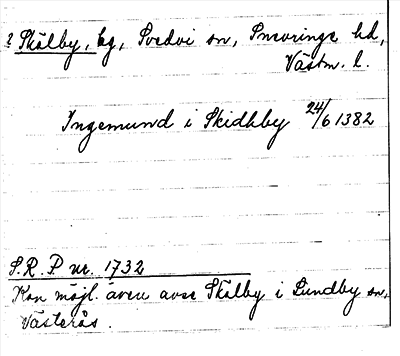 ? Skälby, by, Svedvi sn, Snevringe hd,
Västm. l.
Ingemund i Skidhby 24/6 1382
S.R.P nr. 1732
Kan möjl. även avse Skälby i Lundby sn,
Västerås.